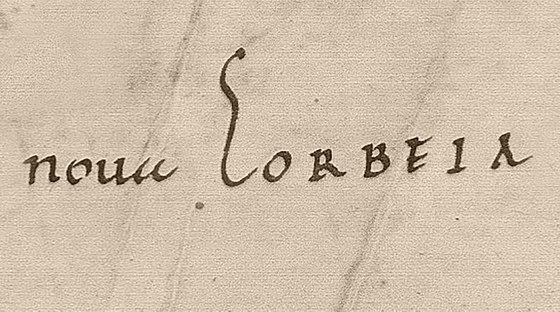 noua CORBEIA